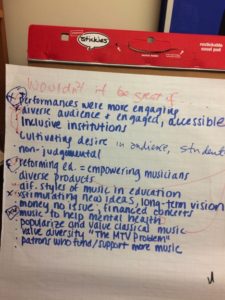 Stickies
restickable
easel pad
Wouldn't it be great if
performances were more engaging
diverse audience + engaged, accessible
Inclusive institutions
cultivating desire in audience, students
non-judgemental
reforming ed. = empowering musicians
diverse products
dif. styles of music in education
stimulating new ideas, long-term vision
money no issue, financed concerts
music to help mental health
popularize and value classical music
value diversity "The MTV Problem"
patrons who fund/support more music